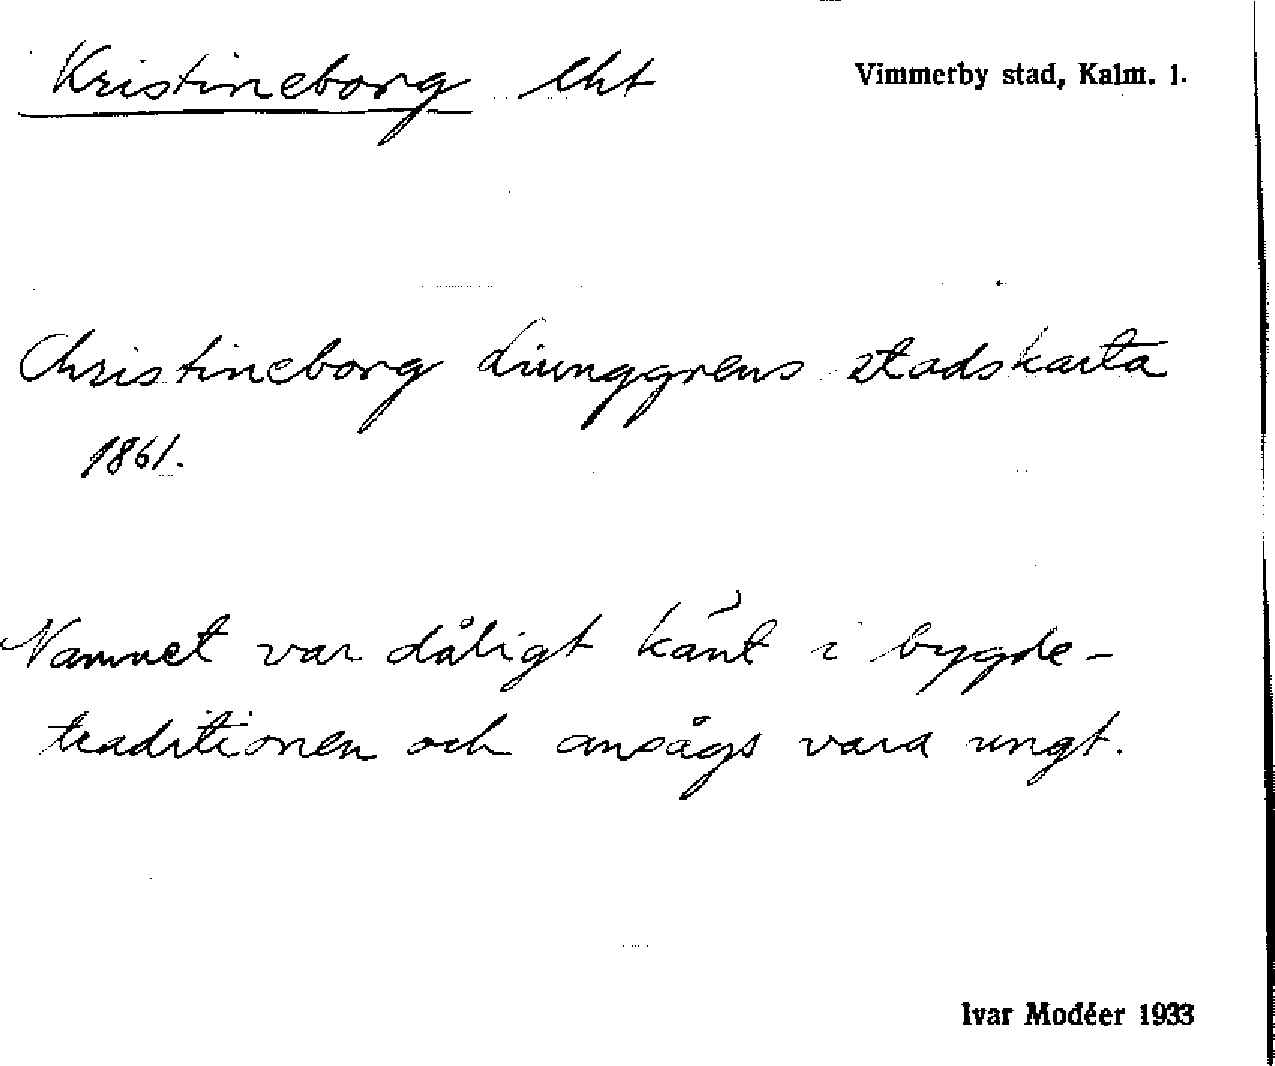 Kristineborg lht Vimmerby stad, Kalm. l.
Christineborg Liunggrens stadskarta
1861.
Namnet var dåligt känt i bygde-
traditionen och ansågs vara ungt.
Ivar Modéer 1933